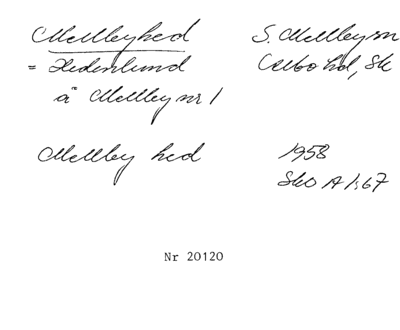 Mellbyhed
= Hedenlund
å Mellby nr 1
S. Mellby sn
Albo hd, Sk
Mellby hed
1958
SkO A 1:67
Nr 20120